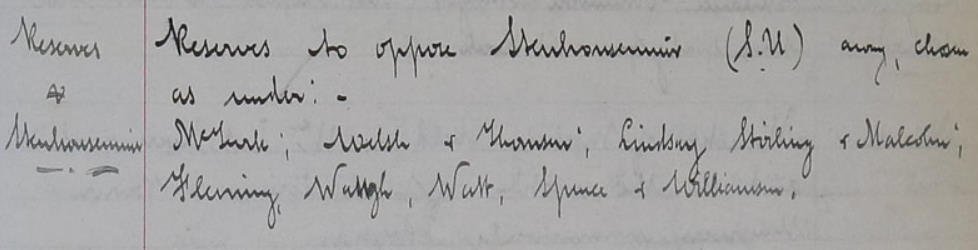 Reserves
Reserves to oppose Stenhousemuir (S.U) away, chosen
&
as under: -
Stenhousemuir
McGurk; Welsh & Thomson; Lindsay Stirling & Malcolm;
Fleming, Waugh, Watt, Spence & Williamson.